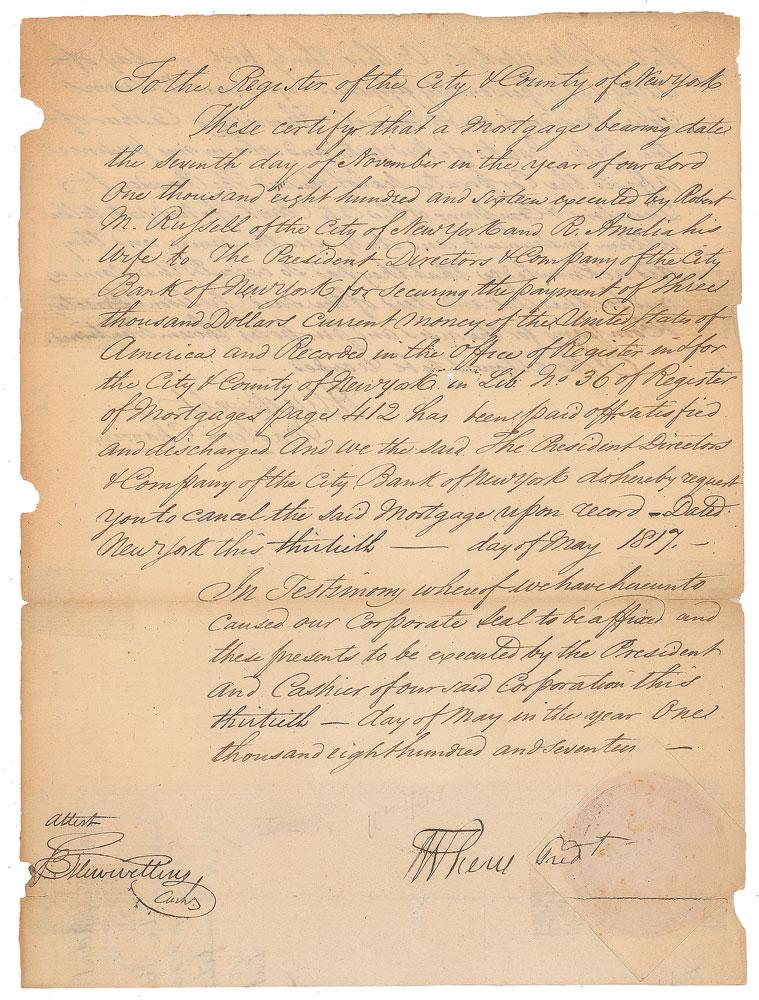 To the Register of the City & County of New York
These certify that a Mortgage bearing date
the Seventh day of November in the year of our Lord
One thousand eight hundred and sixteen executed by Robert
M. Russell of the City of New York and R. Amelia his
Wife to The President Directors & Company of the City
Bank of New York for securing the payment of Three
thousand Dollars current money of the United States of
America and Recorded in the office of Register in & for
the City & County of New York in Lib. No 36 of Register
of Mortgages page 412 has been paid off satisfied
and discharged And we the said The President Directors
& Company of the City Bank of New York do hereby request
you to cancel the said Mortgage upon record - Dated
New York this thirtieth — day of May 1817. -
In Testimony whereof we have hereunto
caused our Corporate Seal to be affixed and
these presents to be executed by the President
and Cashier of our said Corporation this
thirtieth — day of May in the year One
thousand eight hundred and seventeen —
attest
Cashr
Presd t